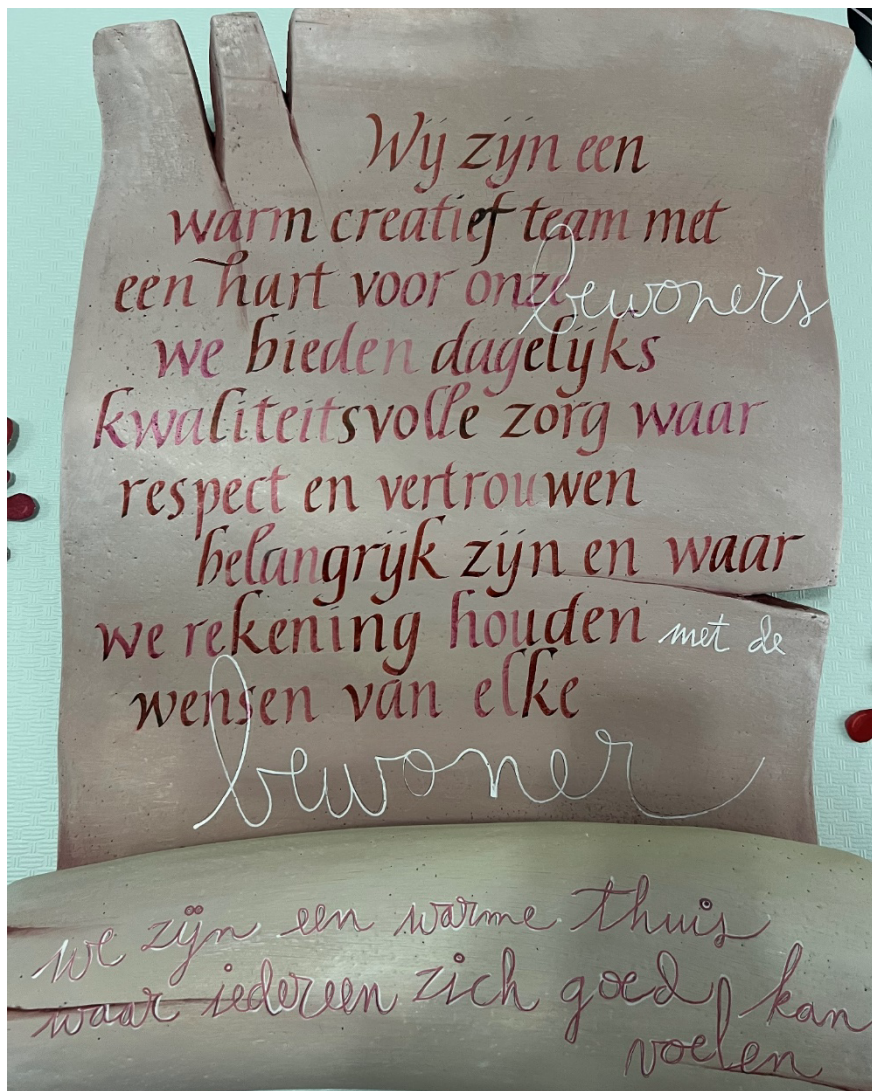 Wij zijn een
warm creatief team met
een hart voor onze bewoners
we bieden dagelijks
kwaliteitsvolle zorg waar
respect en vertrouwen
belangrijk zijn en waar
we rekening houden met de
wensen van elke
bewoner
we zijn een warme thuis
waar iedereen zich goed kan
voelen